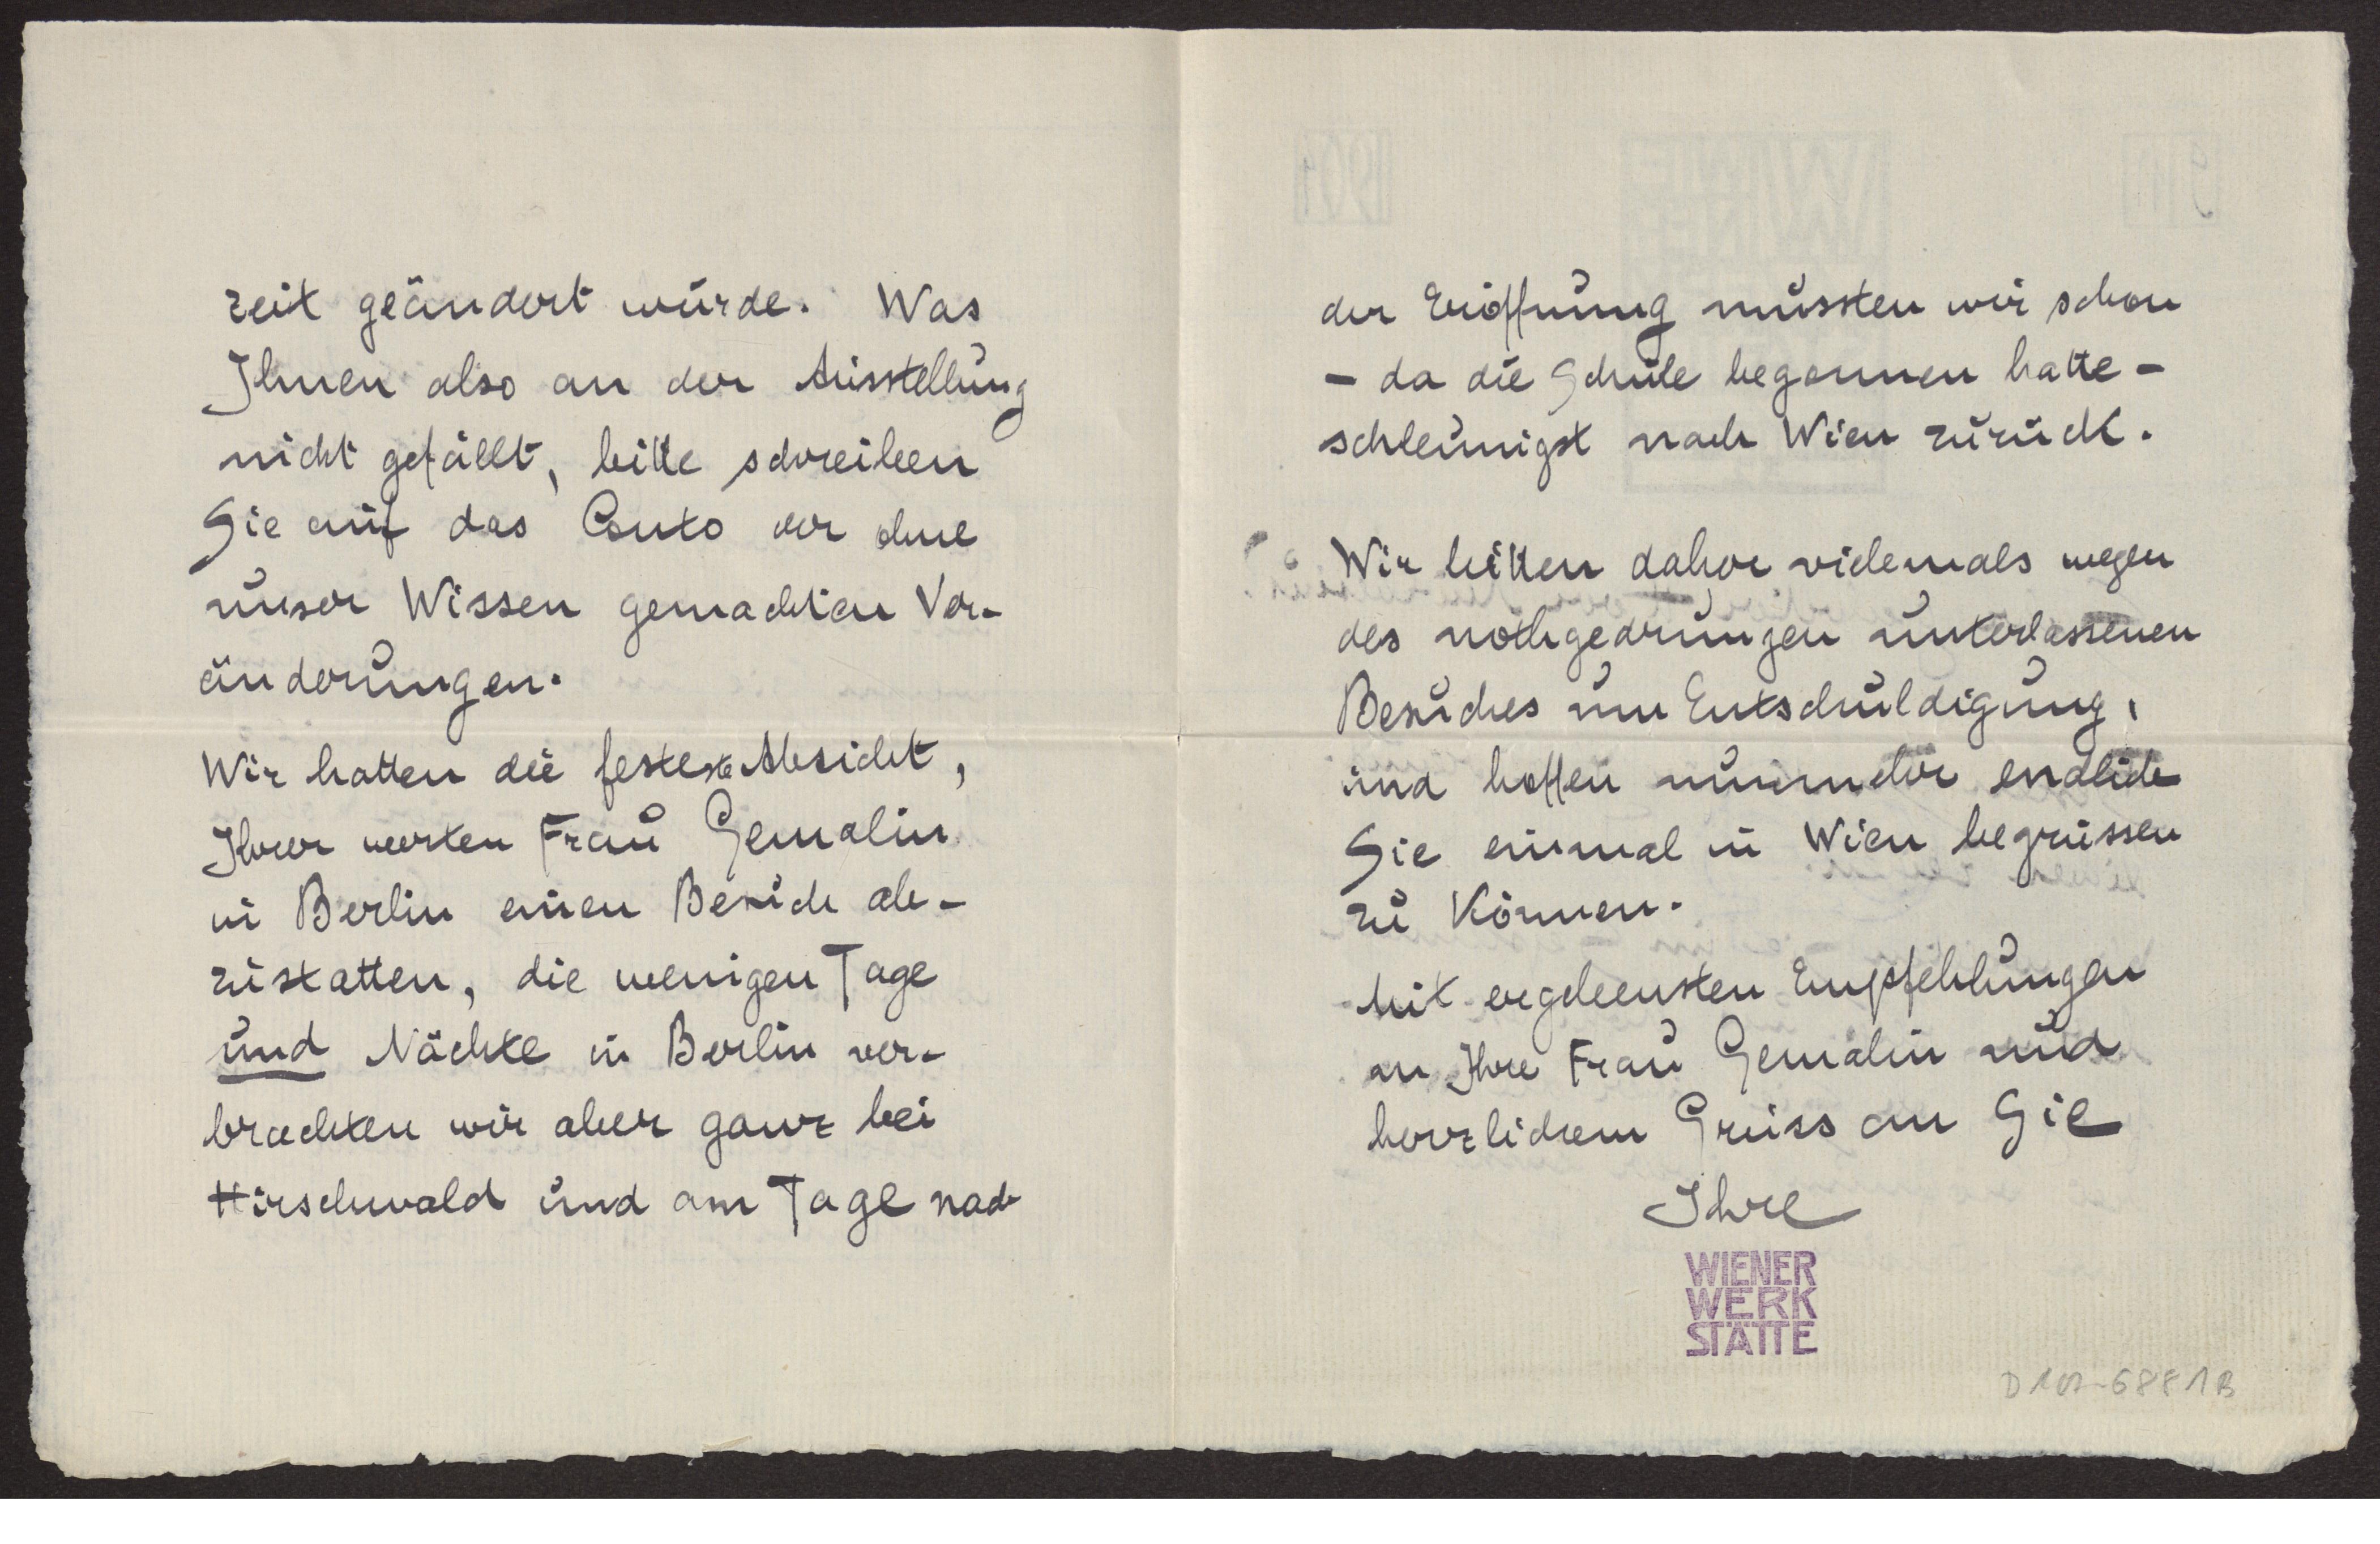 zeit geändert wurde. Was
Ihnen also an der Ausstellung
nicht gefällt, bitte schreiben
Sie auf das Conto der ohne
unser Wissen gemachten Ver-
änderungen.
Wir hatten die festeste Absicht,
Ihrer werten Frau Gemalin
in Berlin einen Besuch ab-
zustatten, die wenigen Tage
und Nächte in Berlin ver-
brachten wir aber ganz bei
Hirschwald und am Tage nach
der Eröffnung mussten wir schon
- da die Schule begonnen hatte -
schleunigst nach Wien zurück.
Wir bitten daher vielemals wegen
des nothgedrungen unterlassenen
Besuches um Entschuldigung,
und hoffen nunmehr endlich
Sie einmal in Wien begrüssen
zu können.
Mit ergebensten Empfehlungen
an Ihre Frau Gemalin und
herzlichem Gruss an Sie
Ihre
WIENER
WERK
STÄTTE
D 102-6881B